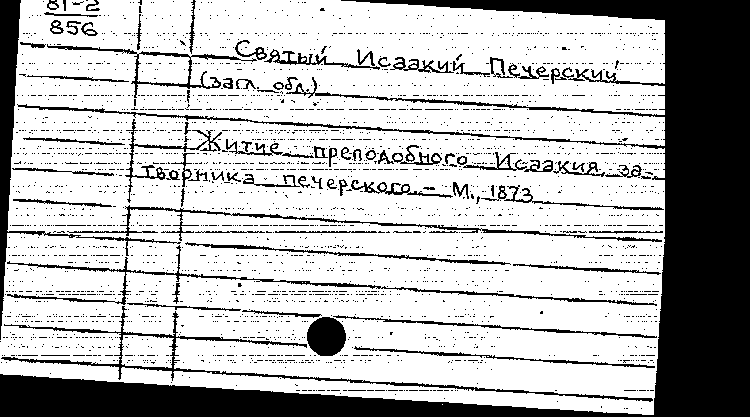 81-2
856
Святый Исаакий Печерский
(загл. обл.)
Житие преподобного Исаакия, за-
творника печерского. - М., 1873